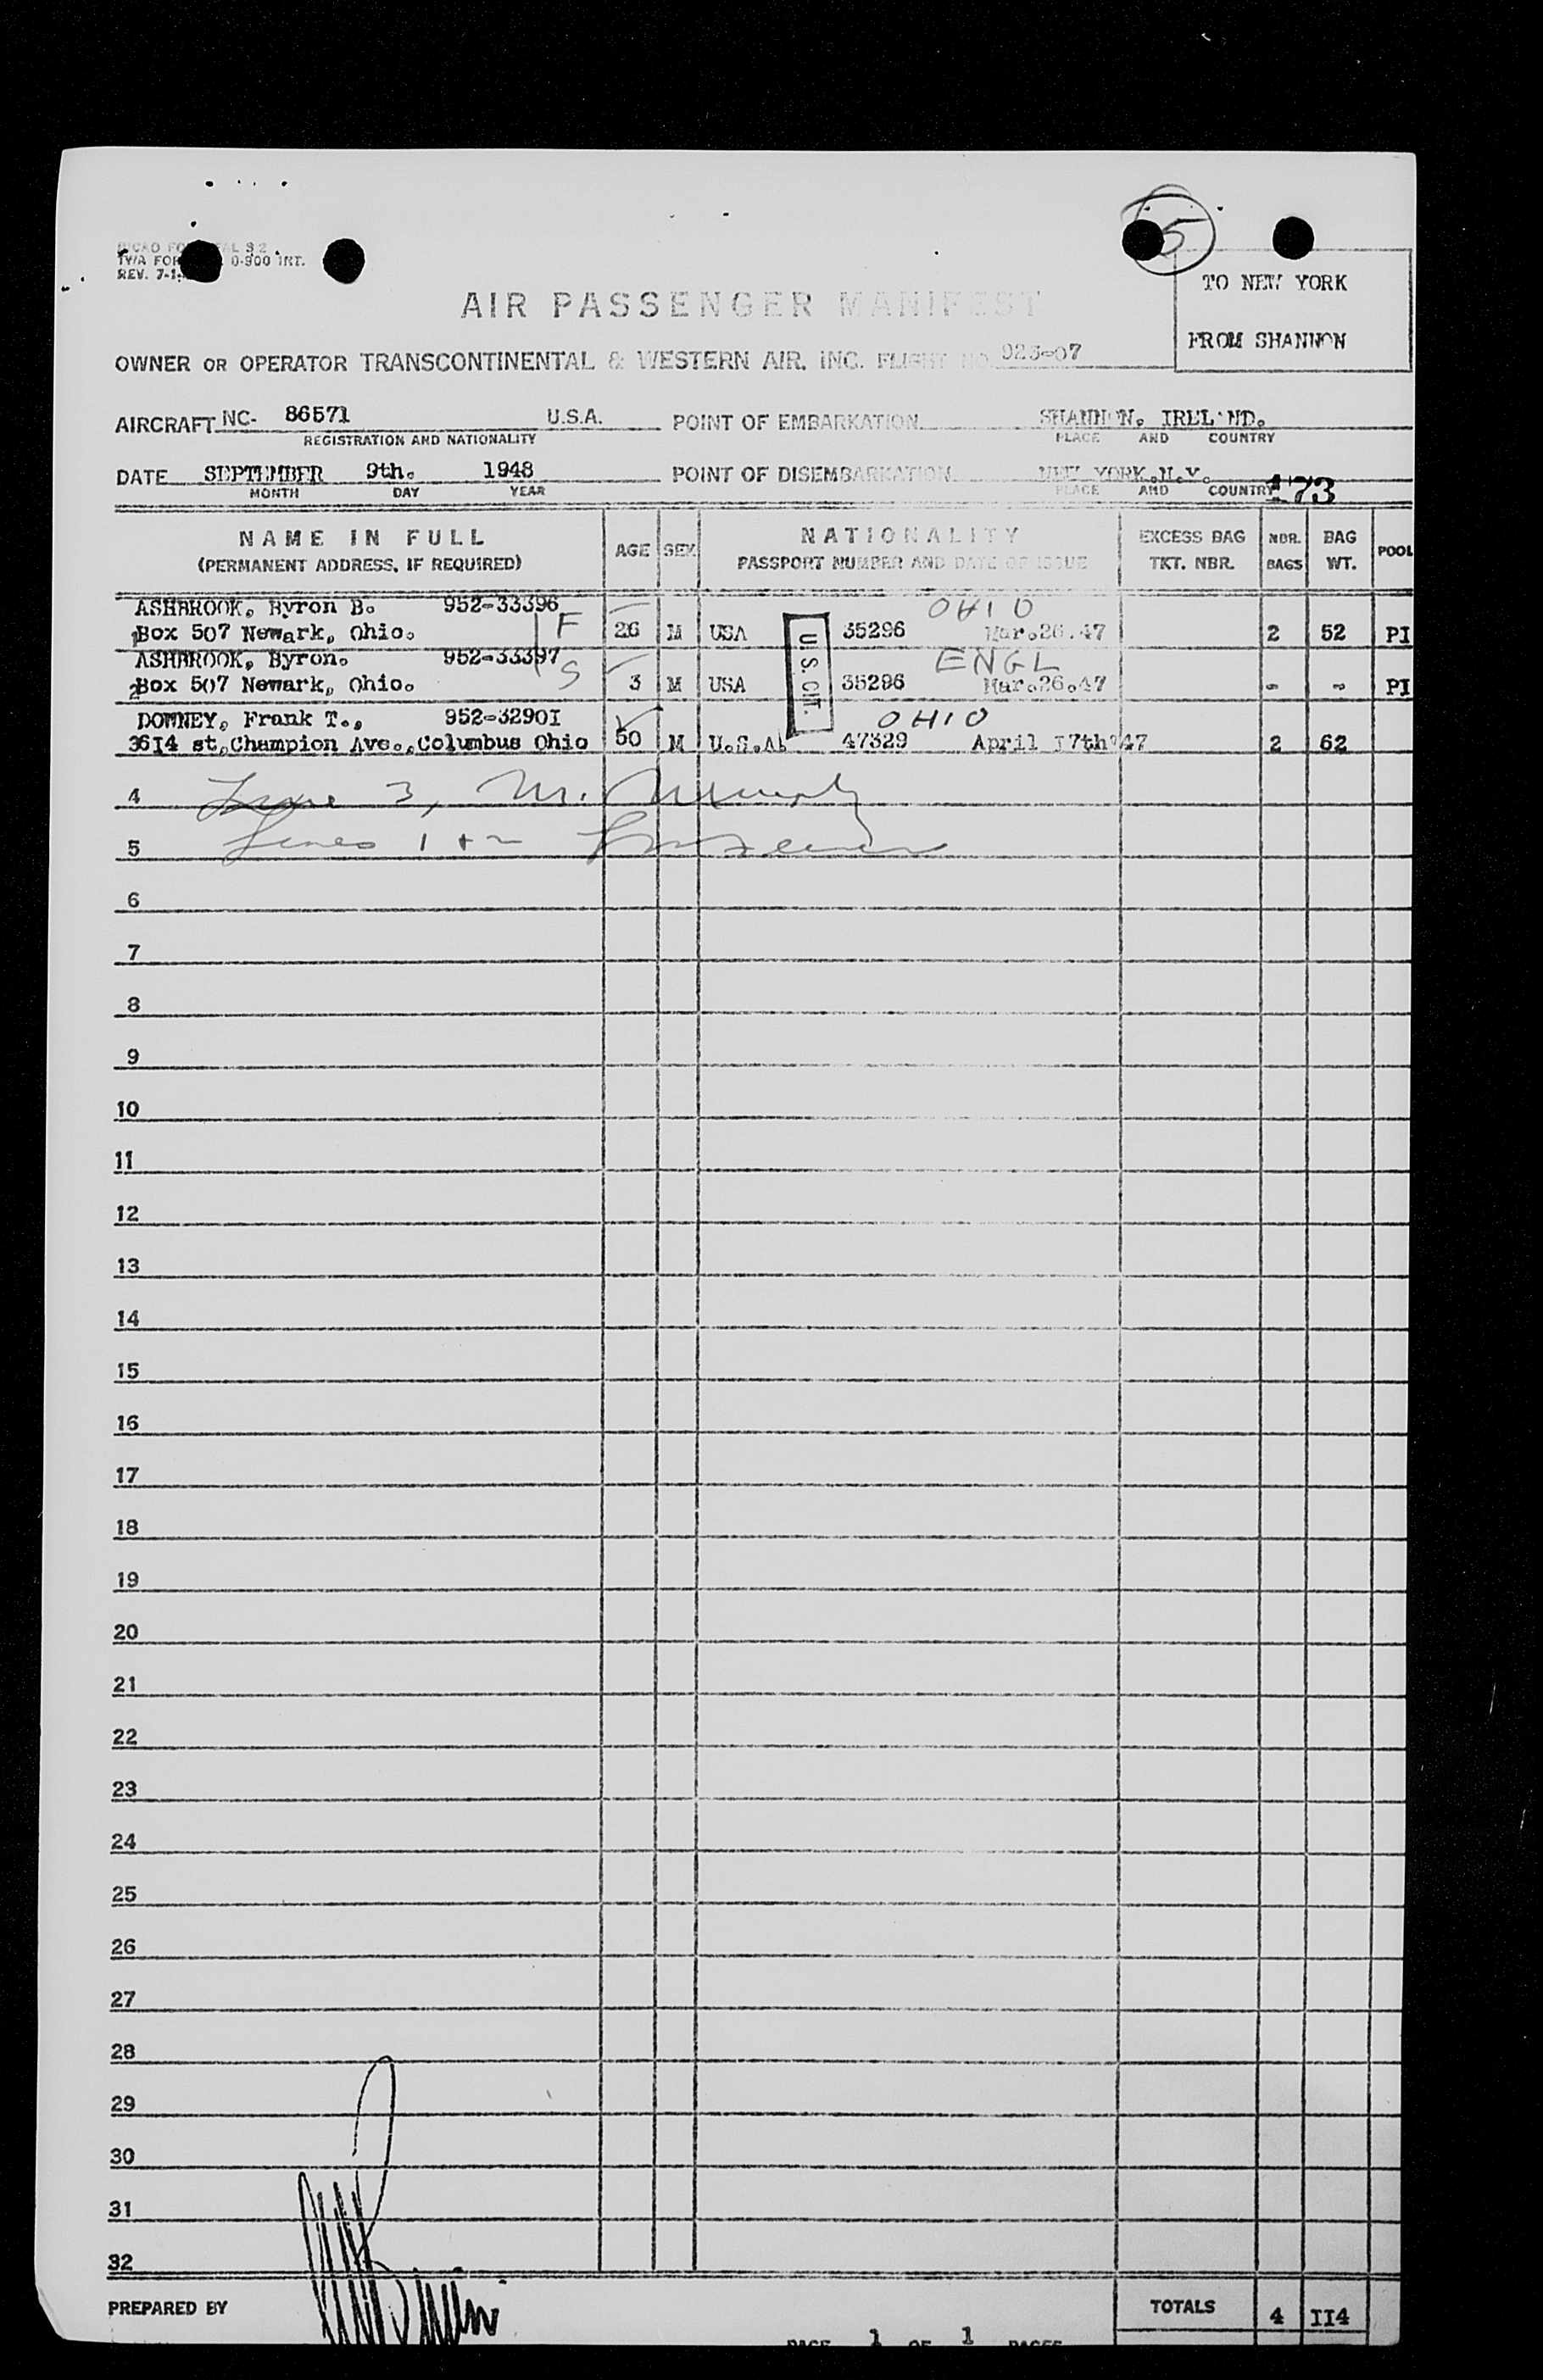 5
TWA FOR 0-300 INT.
REV. 7-1-
TO NEW YORK
FROM SHANNON
AIR PASSENGER MANIFEST
OWNER OR OPERATOR TRANSCONTINENTAL & WESTERN AIR, INC. FLIGHT NO 925-07
AIRCRAFT NC- 86571 U.S.A. POINT OF EMBARKATION SHANNON. IRELAND.
REGISTRATION AND NATIONALITY PLACE AND COUNTRY
DATE SEPTEMBER 9th. 1948 POINT OF DISEMBARKATION NEW YORK.N.Y.
MONTH DAY YEAR PLACE AND COUNTRY 173
NAME IN FULL AGE SEX NATIONALITY EXCESS BAG NBR. BAG POOL
(PERMANENT ADDRESS, IF REQUIRED) PASSPORT NUMBER AND DATE OF ISSUE TKT. NBR. BAGS WT.
ASHBROOK. Byron B. 952-33396 OHIO
1 Box 507 Newark, Ohio. F 26 M USA 35296 Mar.26.47 2 52 PI
ASHBROOK, Byron. 952-33397 ENGL
2 Box 507 Newark, Ohio. S 3 M USA 35296 Mar.26.47 - - PI
U.S. CIT.
DOWNEY, Frank T., 952-3290I OHIO
3 6I4 st.Champion Ave.,Columbus Ohio 50 M U.S.A. 47329 April I7th'47 2 62
4 Line 3, M. Murphy
5 Lines 1 + 2
6
7
8
9
10
11
12
13
14
15
16
17
18
19
20
21
22
23
24
25
26
27
28
29
30
31
32
PREPARED BY TOTALS 4 II4
PAGE 1 OF 1 PAGES